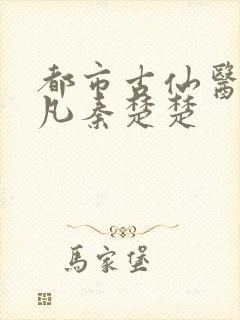 都市古仙醫
凡秦楚楚
馬家堡